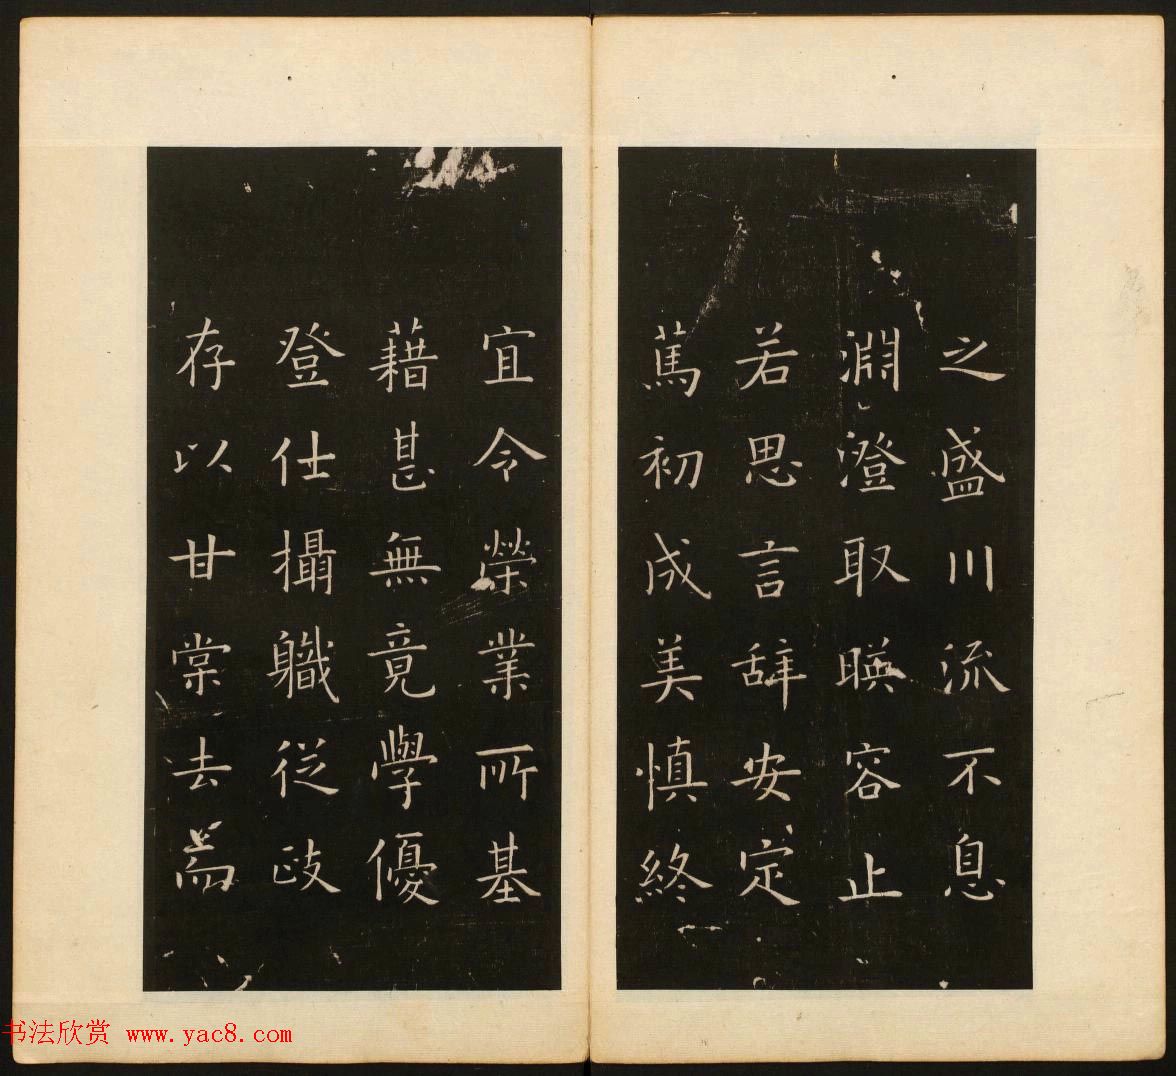 之盛川流不息
淵澄取暎容止
若思言辞安定
篤初成美慎終
宜令榮業所基
藉甚無竟學優
登仕攝職從政
存以甘棠去而
书法欣赏 www.yac8.com